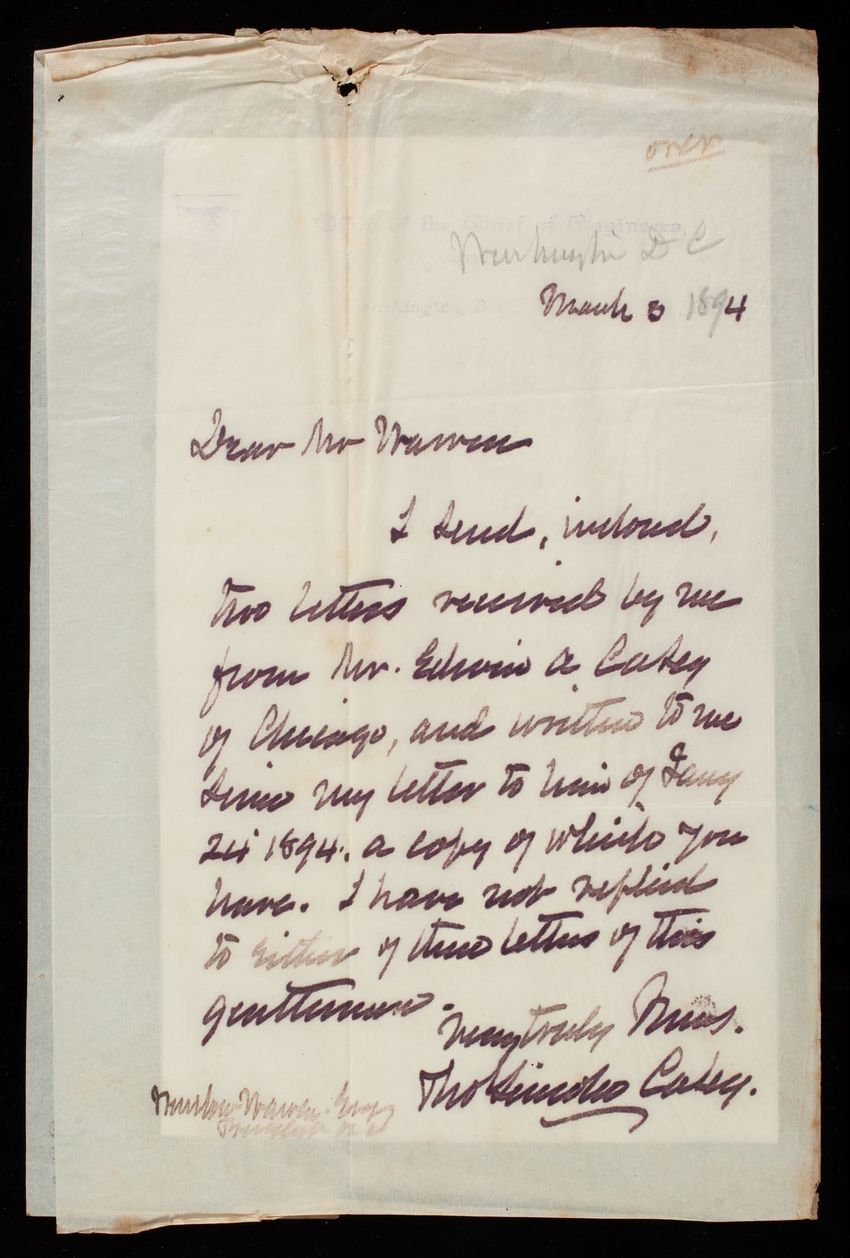 over
Office of the Chief of Engineers,
Washington D C
Washington, D. C.
March 3 1894
Dear Mr Warren
I send, inclosed,
two letters received by me
from Mr. Edwin A Casey
of Chicago, and written to me
since my letter to him of Jany
24 1894. a copy of which you
have. I have not replied
to either of these letters of this
gentleman.
Very truly Yours.
Tho Lincoln Casey.
Winslow Warren. Esq